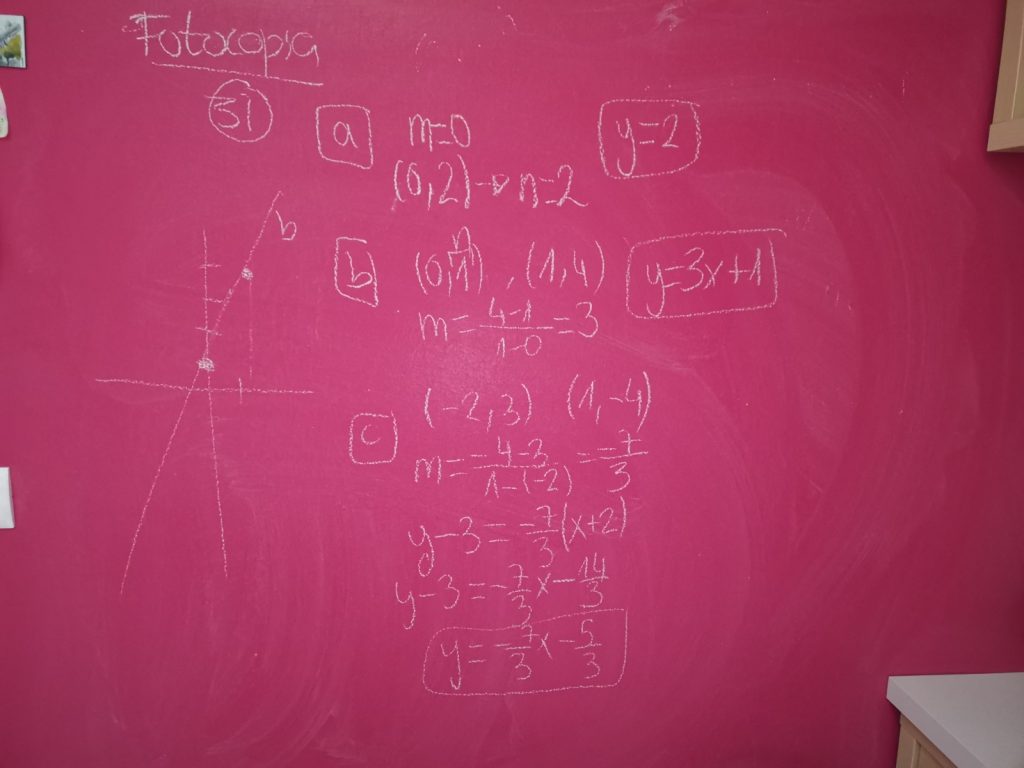 Fotocopia
31
a m=0 y=2
(0,2)→n=2
b
b (0,1) n, (1,4) y=3x+1
m=\frac{4-1}{1-0}=3
c (-2,3) (1,-4)
m=\frac{-4-3}{1-(-2)}=\frac{-7}{3}
y-3=\frac{-7}{3}(x+2)
y-3=\frac{-7}{3}x-\frac{14}{3}
y=\frac{-7}{3}x-\frac{5}{3}